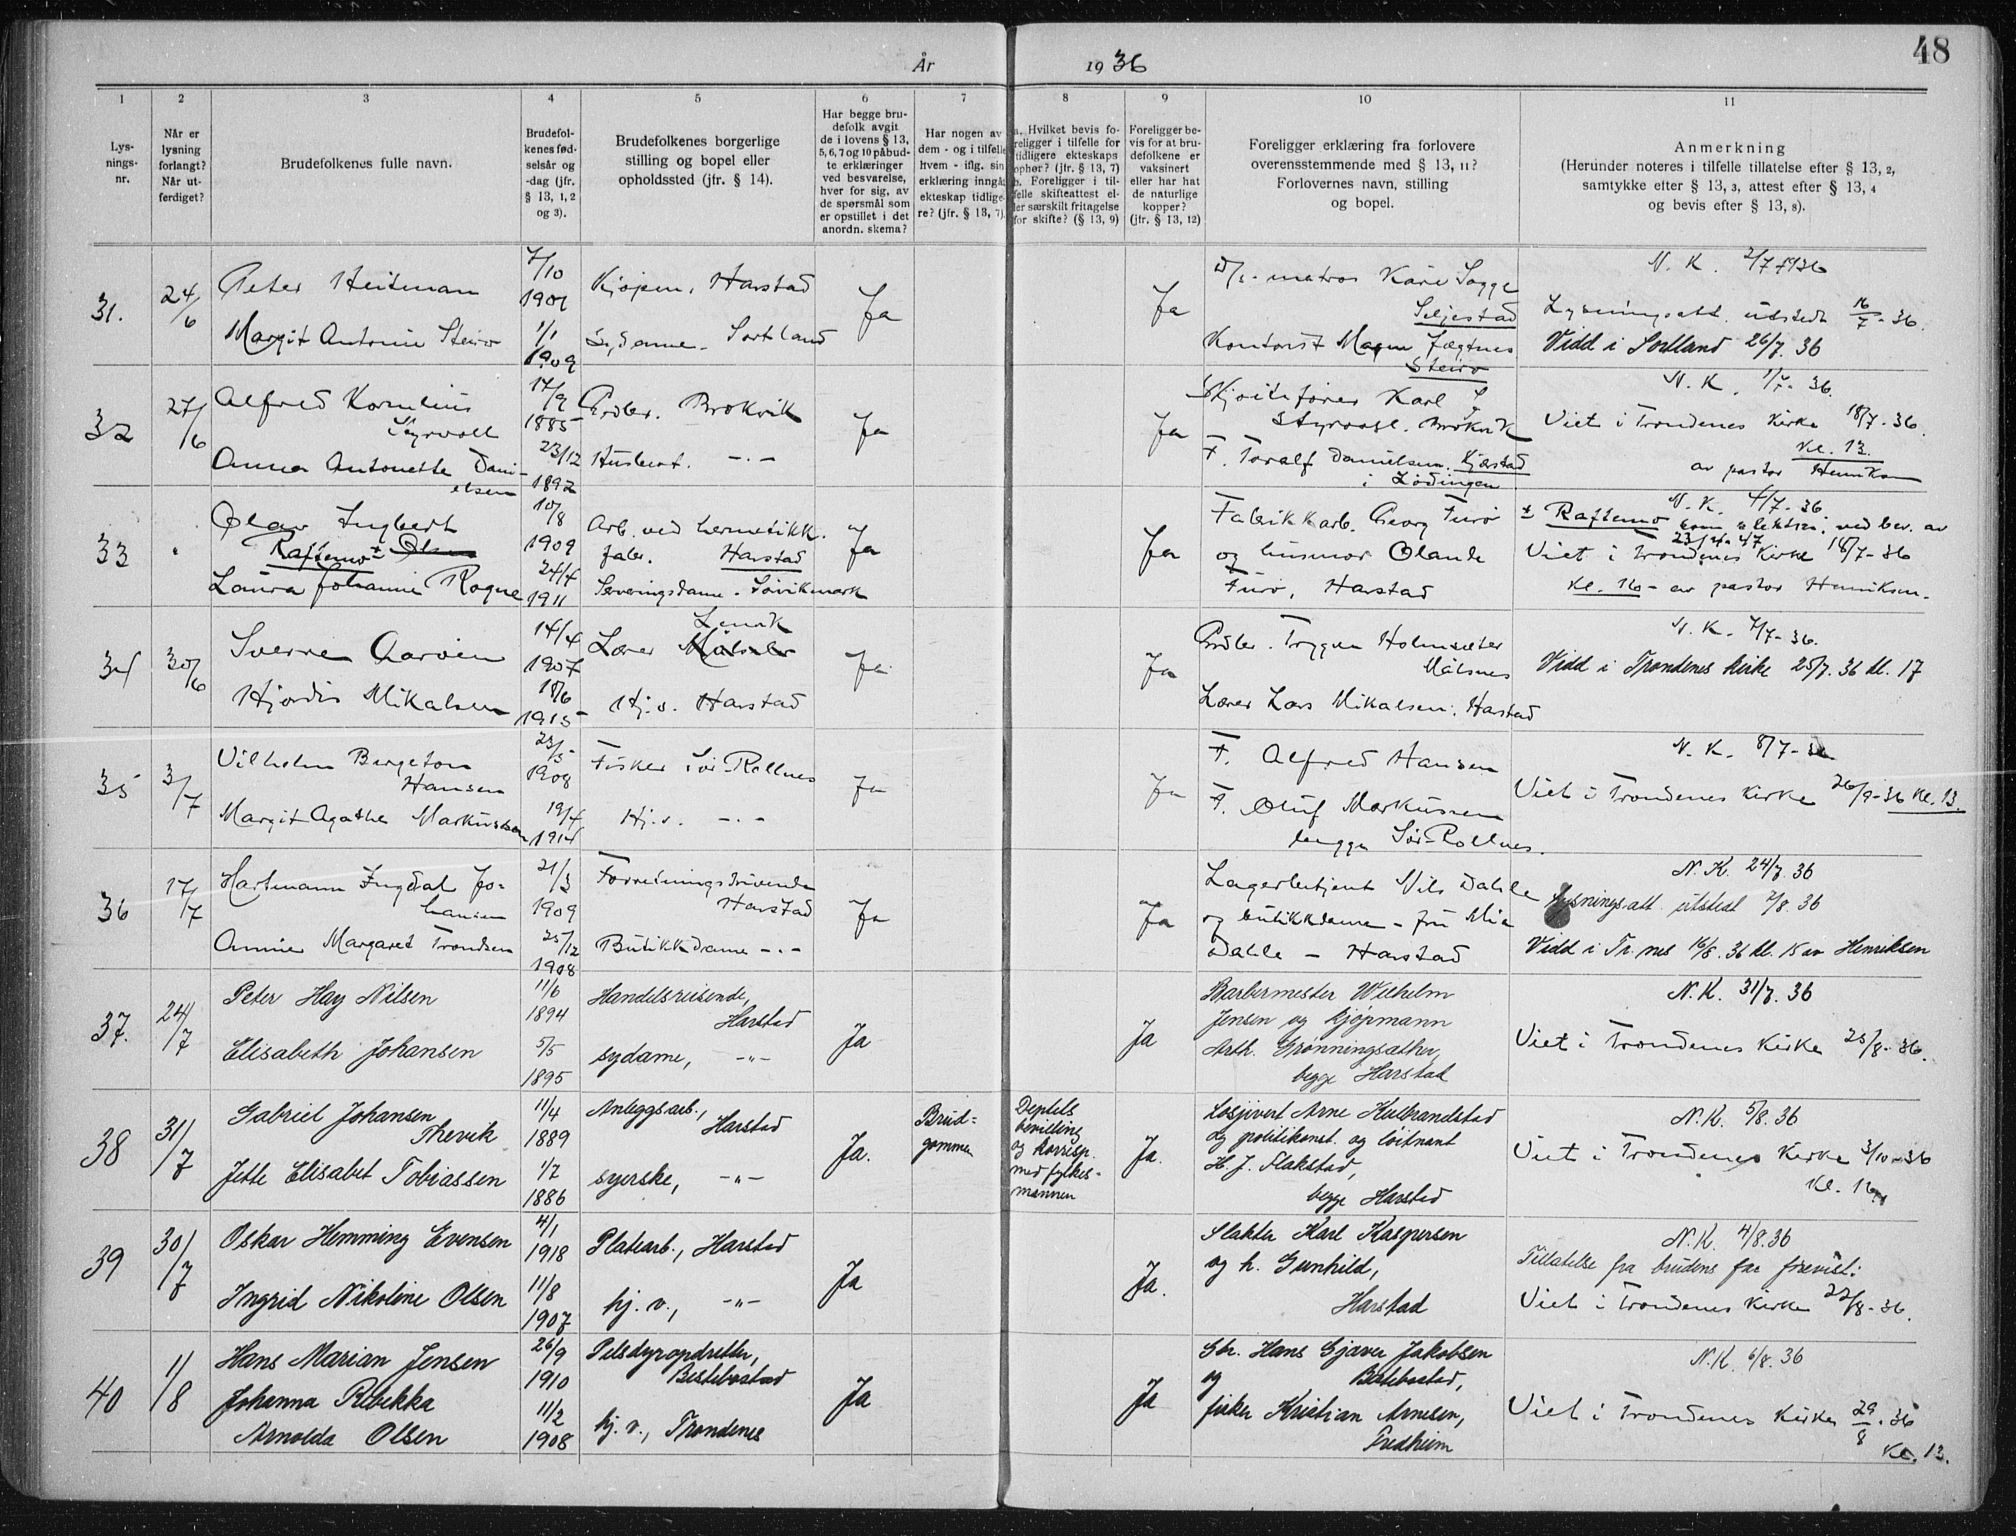 48
År 1936
1 2 3 4 5 6 7 8 9 10 11
Lys-
nings-
nr.
Når er
lysning
forlangt?
Når ut-
ferdiget?
Brudefolkenes fulle navn.
Brudefol-
kenes fød-
selsår og
-dag (jfr.
§ 13, 1, 2
og 3).
Brudefolkenes borgerlige
stilling og bopel eller
opholdssted (jfr. § 14).
Har begge bru-
defolk avgit
de i lovens § 13,
5, 6, 7 og 10 påbud-
te erklæringer
ved besvarelse,
hver for sig, av
de spørsmål som
er opstillet i det
anordn. skema?
Har nogen av
dem - og i tilfelle
hvem - iflg. sin
erklæring inngåt
ekteskap tidlige-
re? (jfr. § 13, 7).
a. Hvilket bevis fo-
religger i tilfelle for
tidligere ekteskaps
ophør? (jfr. § 13, 7)
b. Foreligger i til-
felle skifteattest el-
ler særskilt fritagelse
for skifte? (§ 13, 9)
Foreligger be-
vis for at bru-
defolkene er
vaksinert
eller har hat
de naturlige
kopper?
(jfr. § 13, 12)
Foreligger erklæring fra forlovere
overensstemmende med § 13, 11?
Forlovernes navn, stilling
og bopel.
Anmerkning
(Herunder noteres i tilfelle tillatelse efter § 13, 2,
samtykke efter § 13, 3, attest efter § 13, 4
og bevis efter § 13, 8).
31. 24/6
Peter Heitman
7/10
Kjøpm., Harstad
Margit Antonie Steiro
1/1
1909
Sydame - Sortland
Ja
Ja
matros Kåre Sagge
Seljestad
Kontorist Magne Jægtnes
Steiro
N. K. 2/7 1936
Lysningsatt. utstedt 16/7-36.
Vidd i Sortland 26/7. 36
32 27/6
Alfred Kornelius
Styrvoll
17/9
1885
Grdbr. Brokvik
Anna Antonette Dani-
elsen
23/12
1892
Husbest. -.-
Ja
Ja
Karl
Brokvik
F. Toralf Danielsen. Kjerstad
i Lødingen
N. K. 1/7- 36.
Viet i Trondenes Kirke 18/7-36.
Kl. 13.
av pastor Henriksen
33
Olav Ingbert
Raftemo ± Olsen
10/8
1909
Arb. ved hermetikk.
fabr. Harstad
Laura Johanne Rogne
24/4
1911
Serveringsdame. Sørvikmark
Ja
Ja
Fabrikkarb. Georg Furø
og husmor Olande
Furø, Harstad
N. K. 4/7-36.
± Raftemo som slektsn. ved bev. av
Viet i Trondenes Kirke 18/7-36
Kl. 16 - av pastor Henriksen.
34 30/6
Sverre Aarvien
14/4
1907
Lærer Målselv
Lenvik
Hjördis Mikalsen
18/6
1915
Hj.v. Harstad
Ja
Ja
Grdbr. Trygve Holmsæter
Målsnes
Lærer Lars Mikalsen, Harstad
N. K. 7/7-36.
Vidd i Trondenes kirke 25/7. 36 kl. 17
35 3/7
Vilhelm Bergeton
Hansen
23/5
1908
Fisker Sør-Rollnes
Margit Agathe Markussen
19/4
1914
Hj.v. -.-
Ja
Ja
F. Alfred Hansen
F. Oluf Markussen
begge Sør-Rollnes.
N. K. 8/7-36
Viet i Trondenes Kirke 26/9-36 Kl. 13.
36 17/7
Hartmann Ingdal Jo-
hansen
21/3
1909
Forretningsdrivende
Harstad
Annie Margaret Trondsen
25/12
1908
Butikkdame -.-
Ja
Ja
Lagerbetjent Nils Dahle
og butikkdame - fru Mia
Dahle - Harstad
N. K. 24/7. 36
Lysningsatt. utstedt 7/8. 36
Vidd i Tr. nes 16/8. 36 kl. 15 av Henriksen
37. 24/7
Peter Hay Nilsen
11/6
1894
Handelsreisende,
Harstad
Elisabeth Johansen
5/5
1895
sydame, -"-
Ja
Ja
Barbermester Wilhelm
Jensen og kjøpmann
Arth. Grønningsæther,
begge Harstad
N. K. 31/7. 36
Viet i Trondenes Kirke 25/8-36.
38 31/7
Gabriel Johansen
Thevik
11/4
1889
Anleggsarb.,
Harstad
Jette Elisabet Tobiassen
1/7
1886
syerske, -"-
Ja.
Brud-
gommen
Deptets
bevilling
og korresp.
med fylkes-
mannen
Ja.
Losjivert Arne Hulbrandstad
og politikonst. og løitnant
H. J. Flakstad,
begge Harstad
N. K. 5/8. 36
Viet i Trondenes Kirke 3/10-36
Kl. 16
39 30/7
Oskar Hemming Evensen
4/1
1918
Platearb., Harstad
Ingrid Nikoline Olsen
11/8
1907
hj. v., -"-
Ja
Ja.
Slakter Karl Kaspersen
og h. Gunhild,
Harstad
N. K. 4/8. 36
Tillatelse fra brudens far forevist:
Viet i Trondenes Kirke 22/8-36.
40 1/8
Hans Marian Jensen
26/9
1910
Pelsdyropdretter,
Bestebostad
Johanna Rebekka
Arnolda Olsen
11/2
1908
hj. v., Trondenes
Ja
Ja
Gbr. Hans Gjæver Jakobsen
og Bestebostad,
fisker Kristian Arnesen,
Fredheim
N. K. 6/8. 36
Viet i Trondenes Kirke 29/8. 36
Kl. 13.